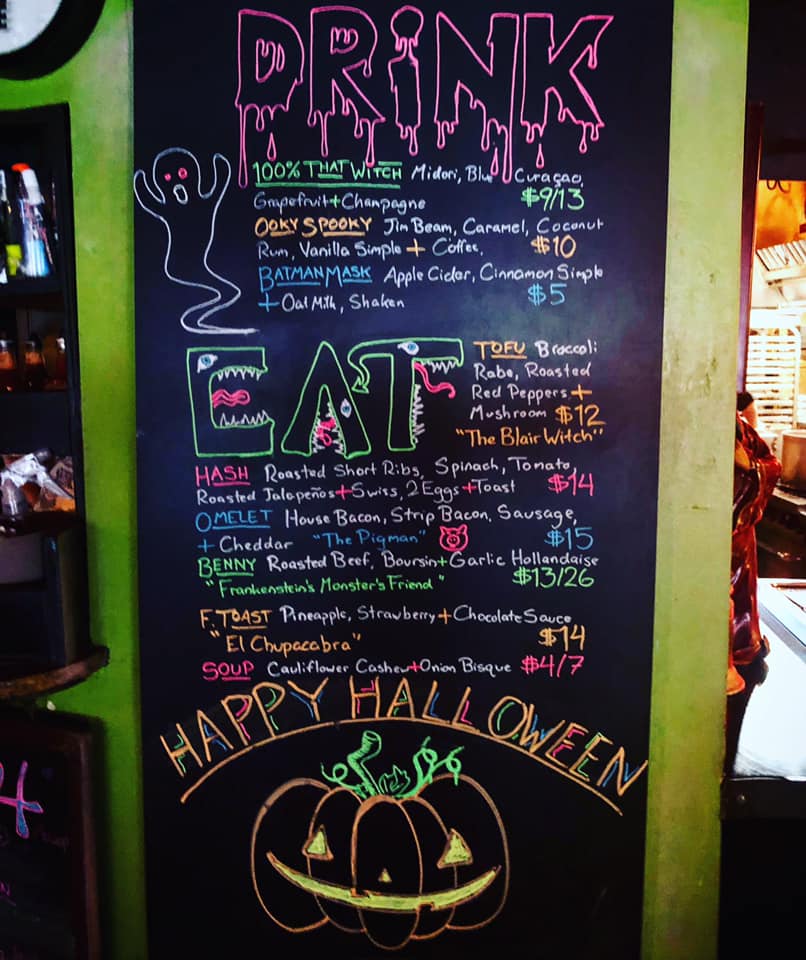 DRiNK
100% THAT WITCH Midori, Blue Curaçao,
Grapefruit + Champagne $9/13
OOKY SPOOKY Jim Beam, Caramel, Coconut
Rum, Vanilla Simple + Coffee, $10
BATMAN MASK Apple Cider, Cinnamon Simple
+ Oat Milk, Shaken $5
EAT
TOFU Broccoli
Rabe, Roasted
Red Peppers +
Mushroom $12
"The Blair Witch"
HASH Roasted Short Ribs, Spinach, Tomato,
Roasted Jalapeños + Swiss, 2 Eggs + Toast $14
OMELET House Bacon, Strip Bacon, Sausage,
+ Cheddar "The Pigman" $15
BENNY Roasted Beef, Boursin + Garlic Hollandaise
"Frankenstein's Monster's Friend" $13/26
F. TOAST Pineapple, Strawberry + Chocolate Sauce
"El Chupacabra" $14
SOUP Cauliflower Cashew + Onion Bisque $4/7
HAPPY HALLOWEEN